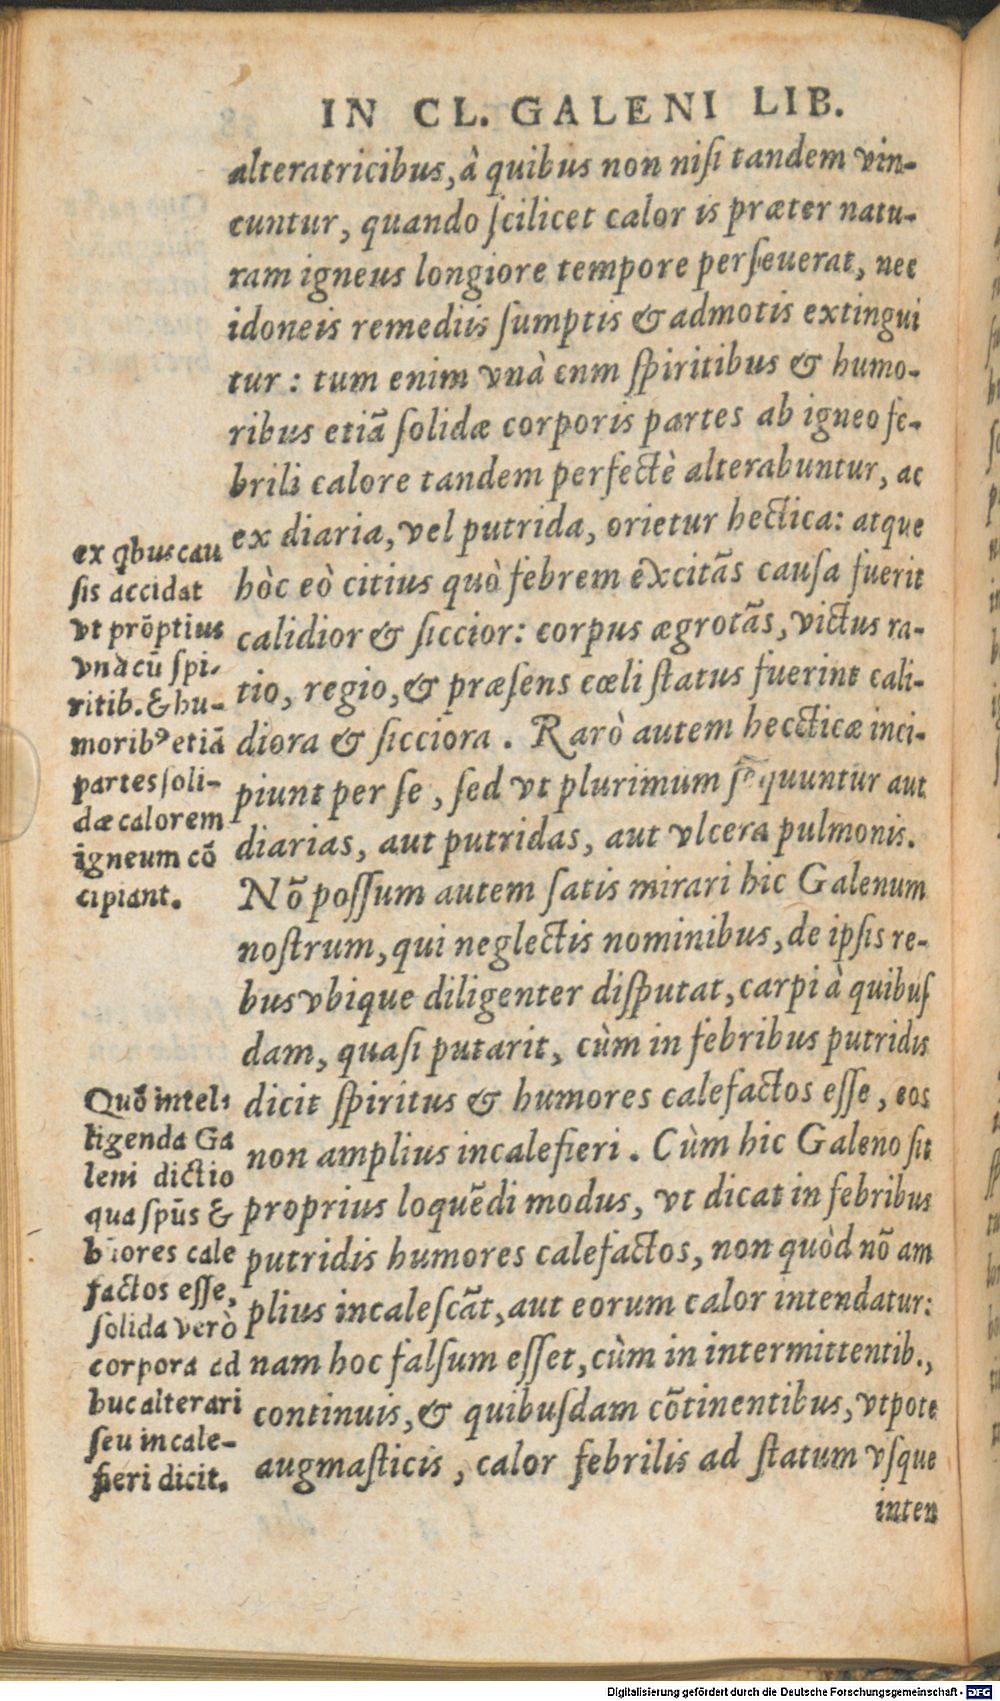 IN CL. GALENI LIB.
alteratricibus, à quibus non nisi tandem vin-
cuntur, quando scilicet calor is præter natu-
ram igneus longiore tempore perseuerat, nec
idoneis remediis sumptis & admotis extingui
tur : tum enim vnà cnm spiritibus & humo-
ribus etiã solidæ corporis partes ab igneo fe-
brili calore tandem perfectè alterabuntur, ac
ex diaria, vel putrida, orietur hectica: atque
hòc eò citius quò febrem excitãs causa fuerit
calidior & siccior: corpus ægrotãs, victus ra-
tio, regio, & præsens cœli status fuerint cali-
diora & sicciora. Rarò autem hecticæ inci-
piunt per se, sed vt plurimum sequuntur aut
diarias, aut putridas, aut vlcera pulmonis.
Nõ possum autem satis mirari hic Galenum
nostrum, qui neglectis nominibus, de ipsis re-
bus vbique diligenter disputat, carpi à quibus
dam, quasi putarit, cùm in febribus putridis
dicit spiritus & humores calefactos esse, eos
non amplius incalefieri. Cùm hic Galeno sit
proprius loquẽdi modus, vt dicat in febribus
putridis humores calefactos, non quòd nõ am
plius incalescãt, aut eorum calor intendatur:
nam hoc falsum esset, cùm in intermittentib.,
continuis, & quibusdam cõtinentibus, vtpote
augmasticis, calor febrilis ad statum vsque
inten
ex qbus cau
sis accidat
vt prõptius
vnà cũ spi-
ritib. & hu-
moribꝰ etiã
partes soli-
dæ calorem
igneum cõ
cipiant.
Quõ intel-
ligenda Ga
leni dictio
qua spũs &
hũores cale
factos esse,
solida verò
corpora ad
huc alterari
seu incale-
fieri dicit.
Digitalisierung gefördert durch die Deutsche Forschungsgemeinschaft - DFG